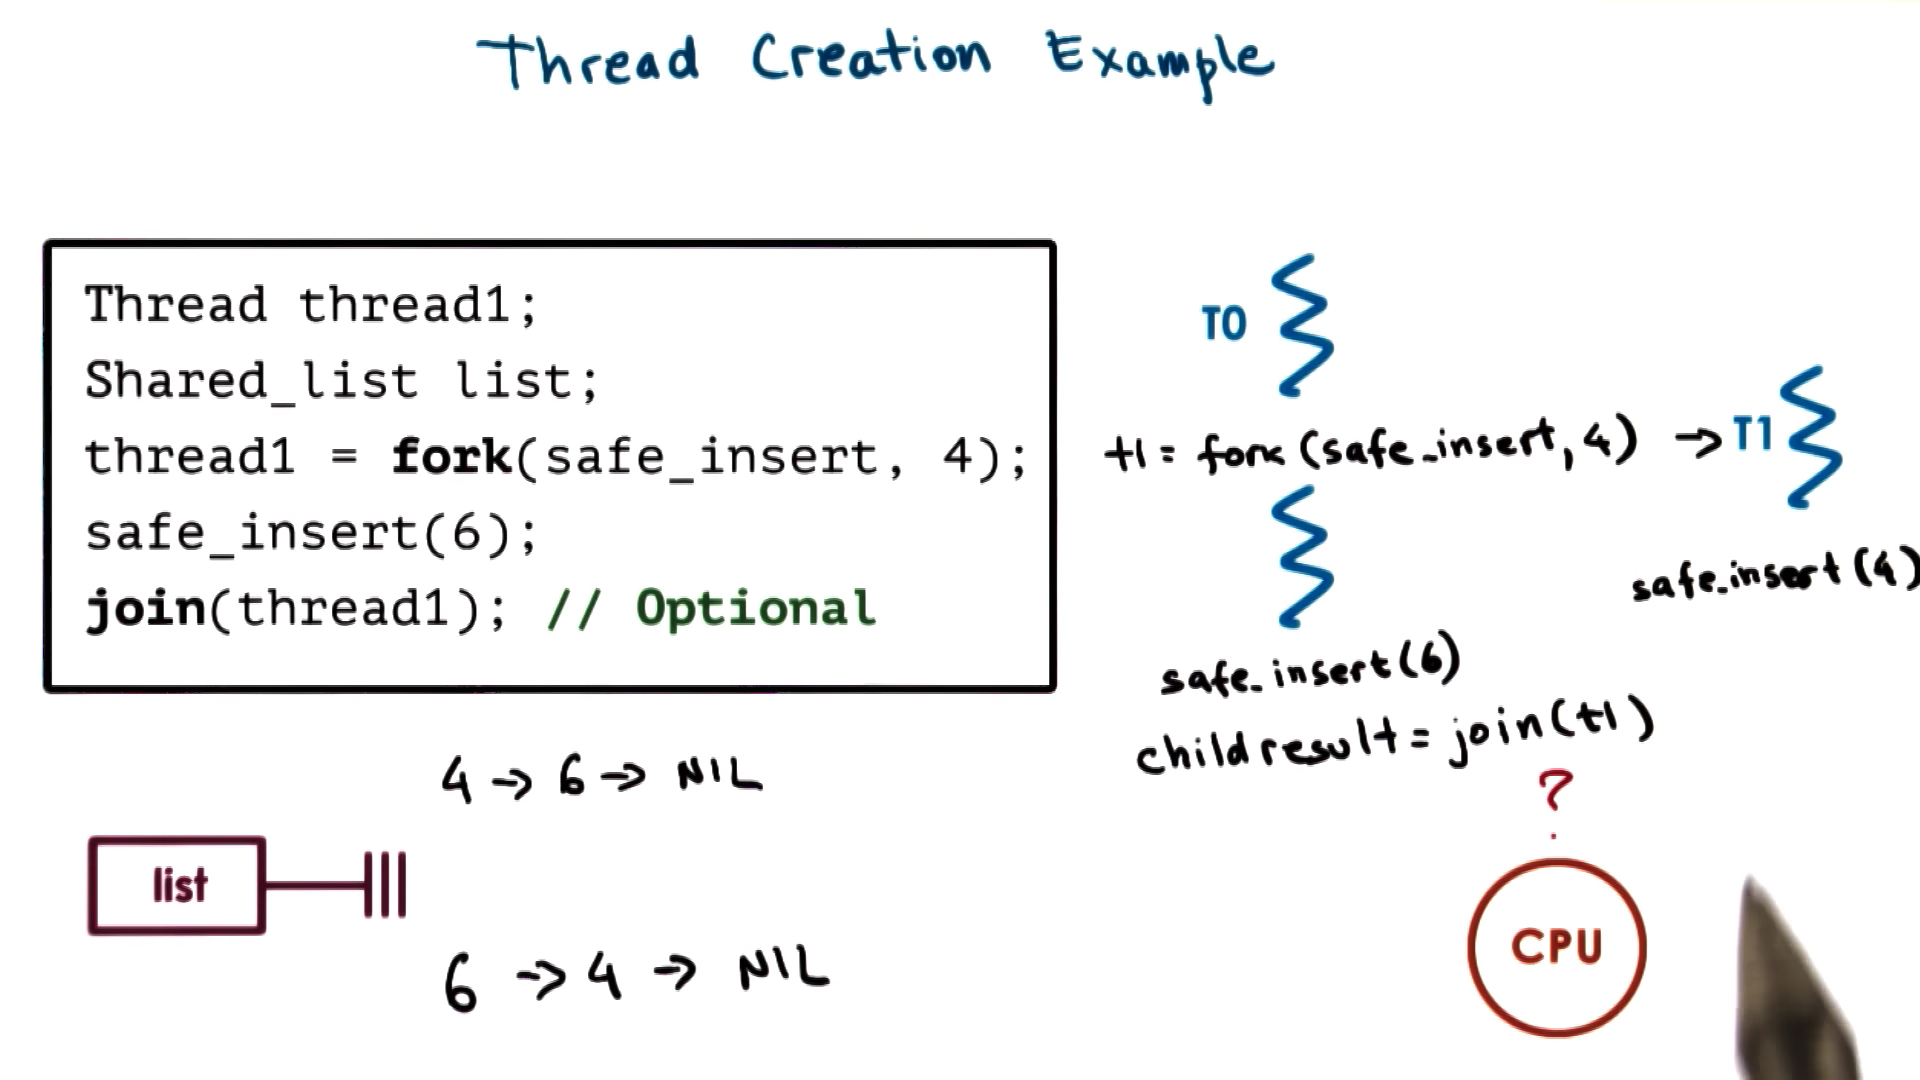 Thread Creation Example
Thread thread1;
Shared_list list;
thread1 = fork(safe_insert, 4);
safe_insert(6);
join(thread1); // Optional
T0
t1 = fork (safe_insert, 4) → T1
safe_insert (4)
safe_insert (6)
child result = join (t1)
?
CPU
4 → 6 → NIL
list
6 → 4 → NIL